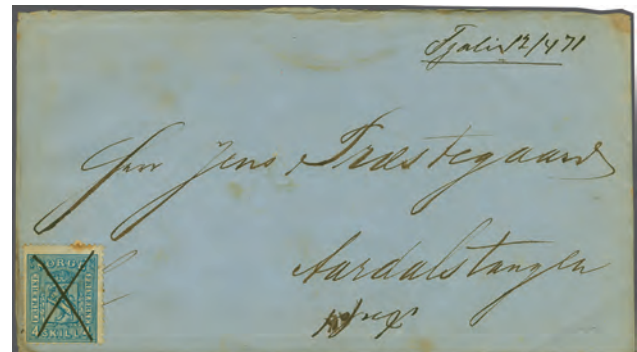 Fjaler 12/4 71
Herr Jens Præstegaard
Aardalstangen
NORGE
FRIMÆRKE
4 SKILL